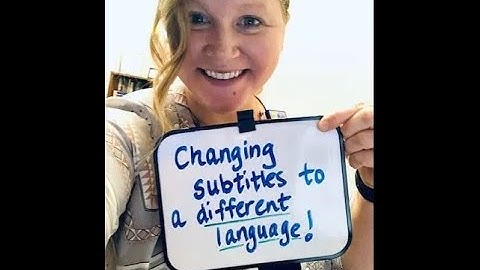 Changing
subtitles to
a different
language!